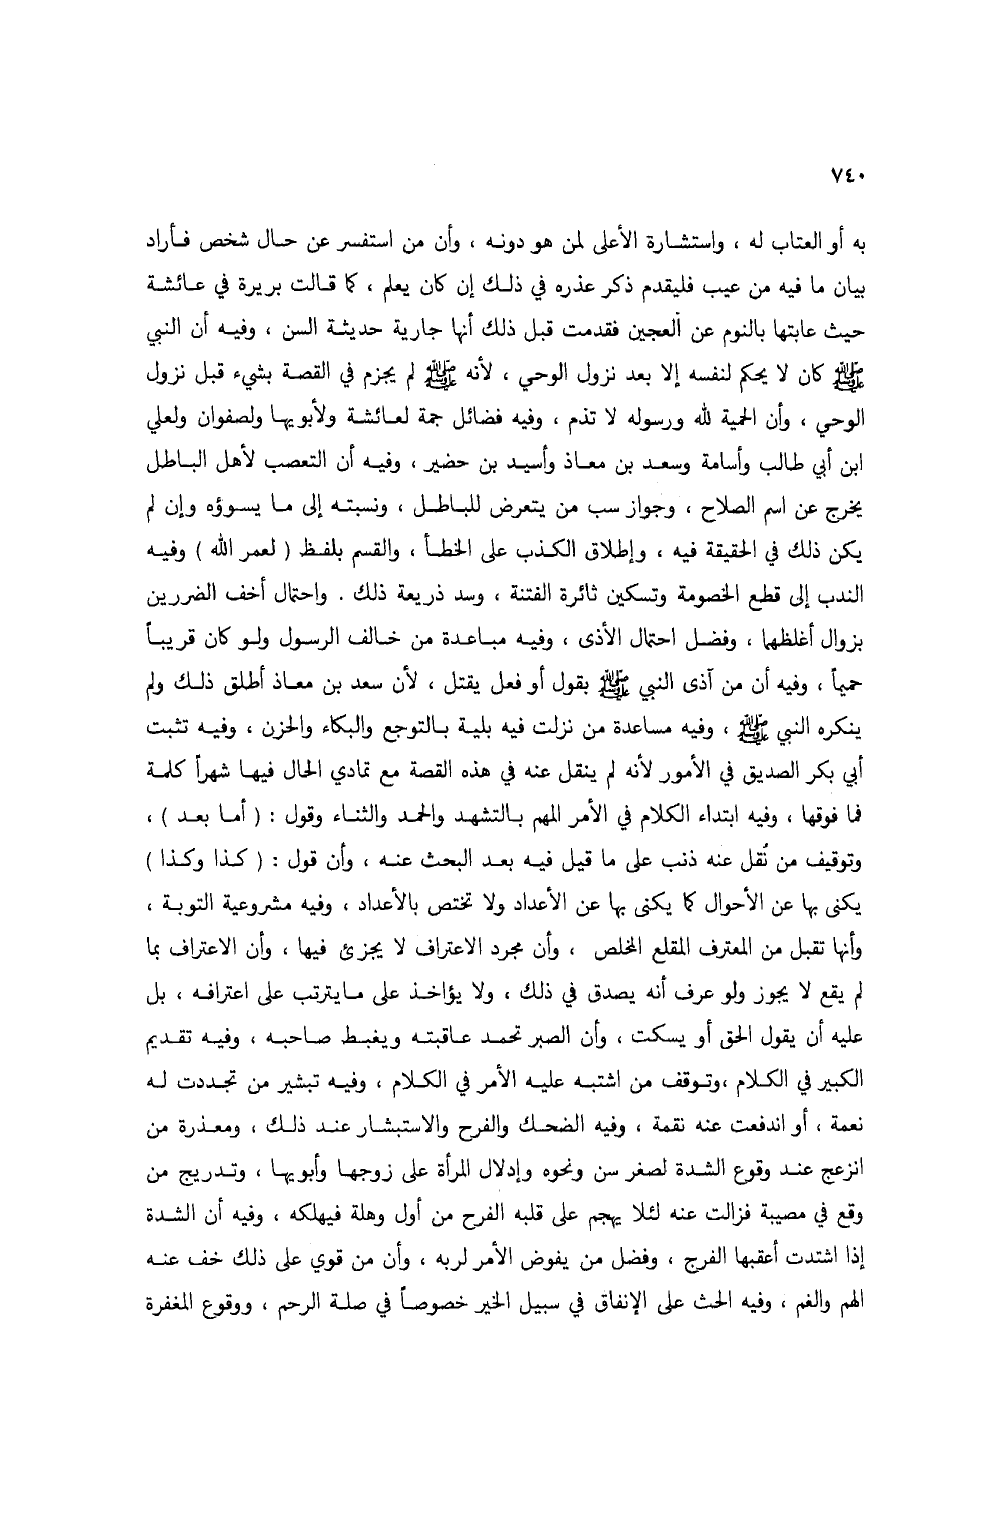 ٧٤٠
به أو العتاب له ، واستشارة الأعلى لمن هو دونه ، وأن من استفسر عن حال شخص فأراد
بيان ما فيه من عيب فليقدم ذكر عذره في ذلك إن كان يعلم ، كما قالت بريرة في عائشة
حيث عابتها بالنوم عن العجين فقدمت قبل ذلك أنها جارية حديثة السن ، وفيه أن النبي
ﷺ كان لا يحكم لنفسه إلا بعد نزول الوحي ، لأنه ﷺ لم يجزم في القصة بشيء قبل نزول
الوحي ، وأن الحمية لله ورسوله لا تذم ، وفيه فضائل جمة لعائشة ولأبويها ولصفوان ولعلي
ابن أبي طالب وأسامة وسعد بن معاذ وأسيد بن حضير ، وفيه أن التعصب لأهل الباطل
يخرج عن اسم الصلاح ، وجواز سب من يتعرض للباطل ، ونسبته إلى ما يسوؤه وإن لم
يكن ذلك في الحقيقة فيه ، وإطلاق الكذب على الخطأ ، والقسم بلفظ ( لعمر الله ) وفيه
الندب إلى قطع الخصومة وتسكين ثائرة الفتنة ، وسد ذريعة ذلك . واحتمال أخف الضررين
بزوال أغلظهما ، وفضل احتمال الأذى ، وفيه مباعدة من خالف الرسول ولو كان قريباً
حميماً ، وفيه أن من آذى النبي ﷺ بقول أو فعل يقتل ، لأن سعد بن معاذ أطلق ذلك ولم
ينكره النبي ﷺ ، وفيه مساعدة من نزلت فيه بلية بالتوجع والبكاء والحزن ، وفيه تثبت
أبي بكر الصديق في الأمور لأنه لم ينقل عنه في هذه القصة مع تمادي الحال فيها شهراً كلمة
فما فوقها ، وفيه ابتداء الكلام في الأمر المهم بالتشهد والحمد والثناء وقول : ( أما بعد ) ،
وتوقيف من نُقل عنه ذنب على ما قيل فيه بعد البحث عنه ، وأن قول : ( كذا وكذا )
يكنى بها عن الأحوال كما يكنى بها عن الأعداد ولا تختص بالأعداد ، وفيه مشروعية التوبة ،
وأنها تقبل من المعترف المقلع المخلص ، وأن مجرد الاعتراف لا يجزئ فيها ، وأن الاعتراف بما
لم يقع لا يجوز ولو عرف أنه يصدق في ذلك ، ولا يؤاخذ على مايترتب على اعترافه ، بل
عليه أن يقول الحق أو يسكت ، وأن الصبر تحمد عاقبته ويغبط صاحبه ، وفيه تقديم
الكبير في الكلام ،وتوقف من اشتبه عليه الأمر في الكلام ، وفيه تبشير من تجددت له
نعمة ، أو اندفعت عنه نقمة ، وفيه الضحك والفرح والاستبشار عند ذلك ، ومعذرة من
انزعج عند وقوع الشدة لصغر سن ونحوه وإدلال المرأة على زوجها وأبويها ، وتدريج من
وقع في مصيبة فزالت عنه لئلا يهجم على قلبه الفرح من أول وهلة فيهلكه ، وفيه أن الشدة
إذا اشتدت أعقبها الفرج ، وفضل من يفوض الأمر لربه ، وأن من قوي على ذلك خف عنه
الهم والغم ، وفيه الحث على الإنفاق في سبيل الخير خصوصاً في صلة الرحم ، ووقوع المغفرة